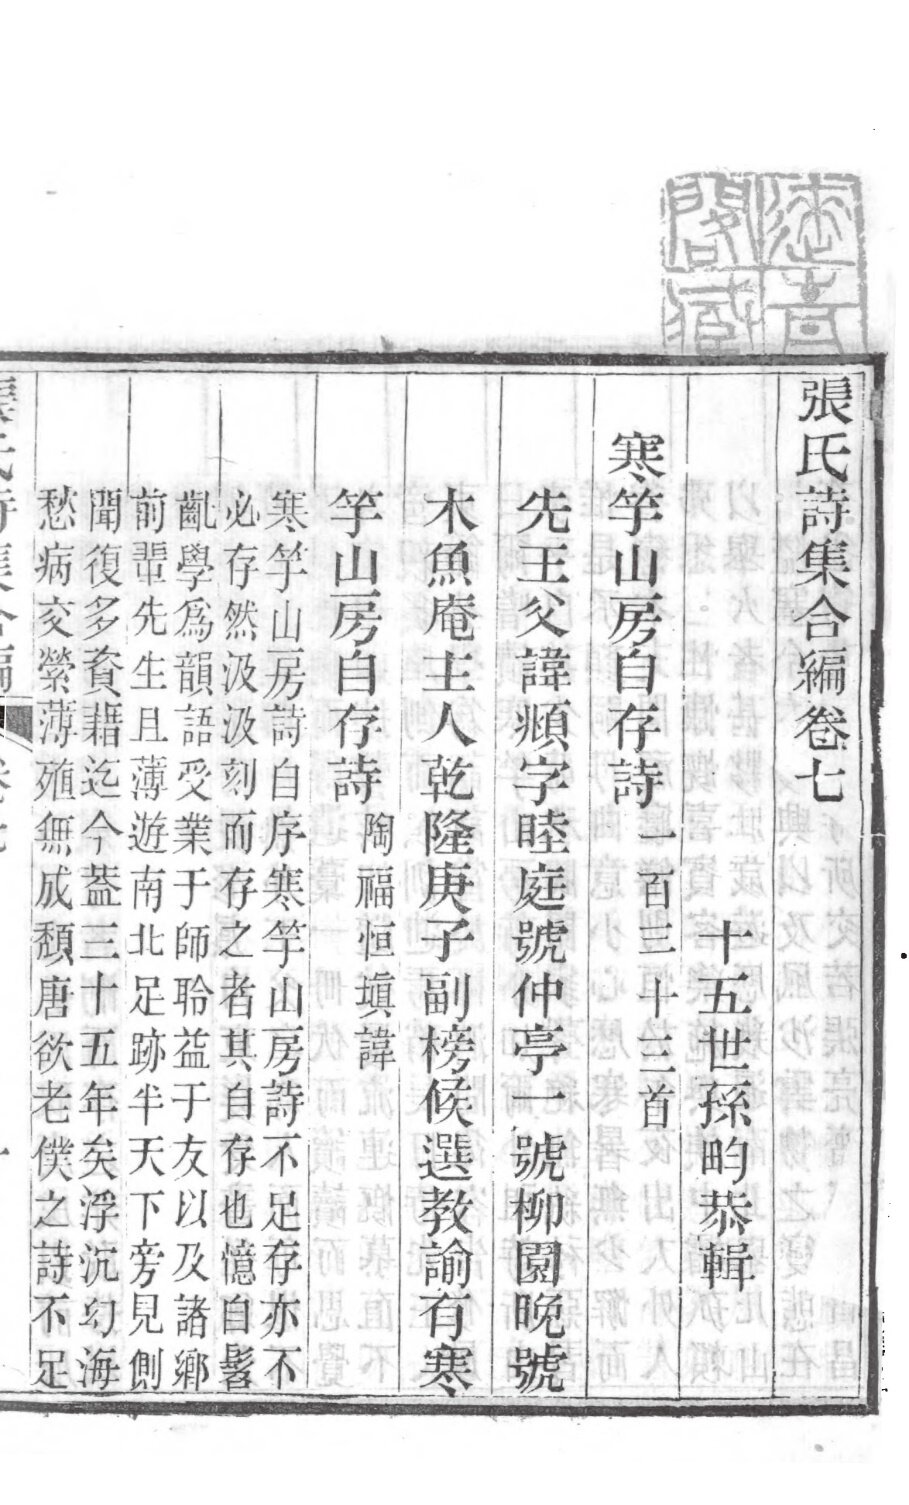 張氏詩集合編卷七
十五世孫畇恭輯
寒竽山房自存詩 一百三十三首
先王父諱頫字睦庭號仲亭一號柳園晚號
木魚庵主人乾隆庚子副榜候選教諭有寒
竽山房自存詩 陶福恒塡諱
寒竽山房詩自序寒竽山房詩不足存亦不
必存然汲汲刻而存之者其自存也憶自髫
齓學爲韻語受業于師聆益于友以及諸鄉
前輩先生且薄遊南北足跡半天下旁見側
聞復多資藉迄今葢三十五年矣浮沉幻海
愁病交縈薄殖無成頹唐欲老僕之詩不足